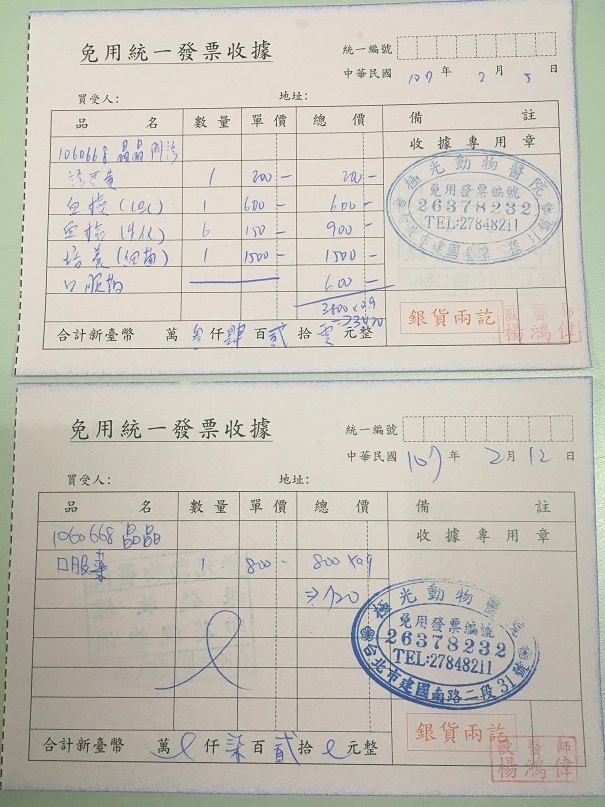 免用統一發票收據
統一編號
中華民國 107 年 2 月 5 日
買受人: 地址:
品名 數量 單價 總價 備註
收據專用章
1060668 晶晶 門診
1 200- 200-
血檢(CBC) 1 600- 600-
血檢(生化) 6 150- 900-
培養(細菌) 1 1500- 1500-
口服藥 600-
3800×0.9
→3420
極光動物醫院
免用發票編號
26378232
TEL:27848211
銀貨兩訖
獸醫師
楊鴻偉
合計新臺幣 萬 叁 仟 肆 百 貳 拾 零 元整
免用統一發票收據
統一編號
中華民國 107 年 2 月 12 日
買受人: 地址:
品名 數量 單價 總價 備註
收據專用章
1060668 晶晶
口服藥 1 800- 800×0.9
⇒720
極光動物醫院
免用發票編號
26378232
TEL:27848211
台北市建國南路二段31號
銀貨兩訖
獸醫師
楊鴻偉
合計新臺幣 萬 仟 柒 百 貳 拾 元整